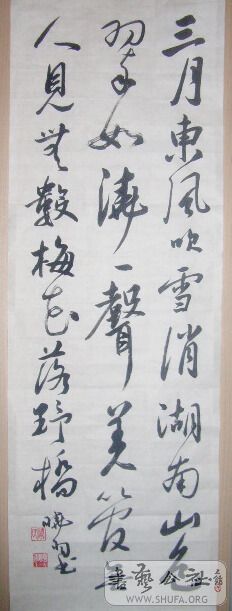 三月東風吹雪消湖南山色
翠如澆一聲羌管無
人見無數梅花落野橋
書藝公社
WWW.SHUFA.ORG